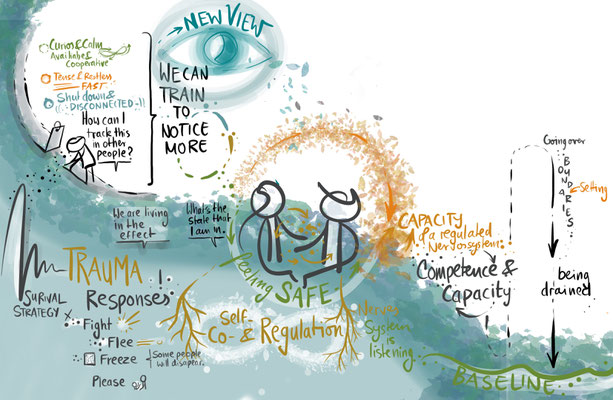 NEW VIEW
Curios & Calm
Available &
Cooperative
Tense & Restless
FAST
Shut down &
DISCONNECTED
How can I
track this
in other
people?
WE CAN
TRAIN
TO
NOTICE
MORE
We are living
in the
effect
What's the
state that
I am in.
TRAUMA
Responses!
SURVIVAL
STRATEGY
Fight
Flee
Freeze
Some people
will disapear.
Please
feeling SAFE
Self-
Co- & Regulation
Nervous
System
is
listening.
CAPACITY
of a regulated
Nervosystem.
Competence &
Capacity
Going over
BOUNDARIES
Setting
being
drained
BASELINE